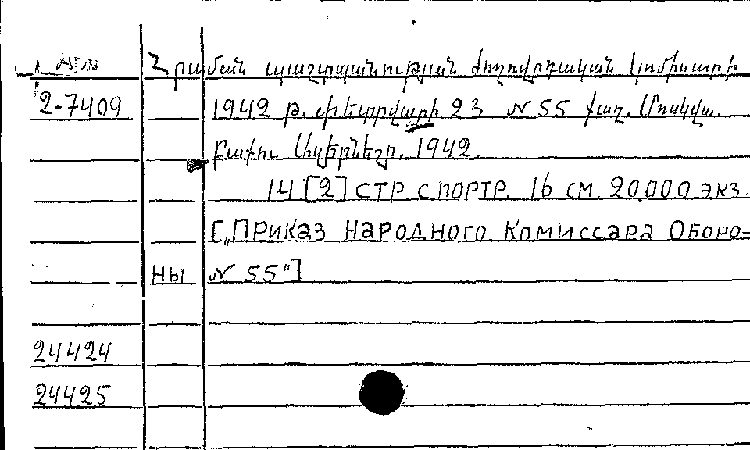 Հրաման պաշտպանության ժողովրդական կոմիսարի
2-7409 1942 թ. փետրվարի 23 № 55 քաղ. Մոսկվա.
Բաքու Ազերնեշր. 1942
14 [2] стр с портр. 16 см. 20.000 экз.
[„Приказ Народного Комиссара Оборо=
ны № 55"]
24424
24425